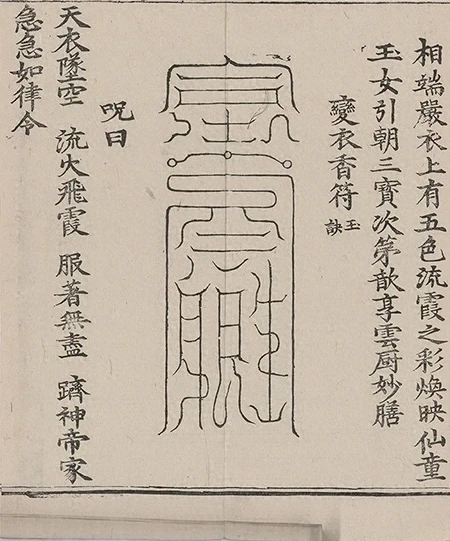 相端嚴衣上有五色流霞之彩煥映仙童
玉女引朝三寶次第歆享雲厨妙膳
變衣香符玉訣
呪曰
天衣墜空 流火飛霞 服著無盡 躋神帝家
急急如律令